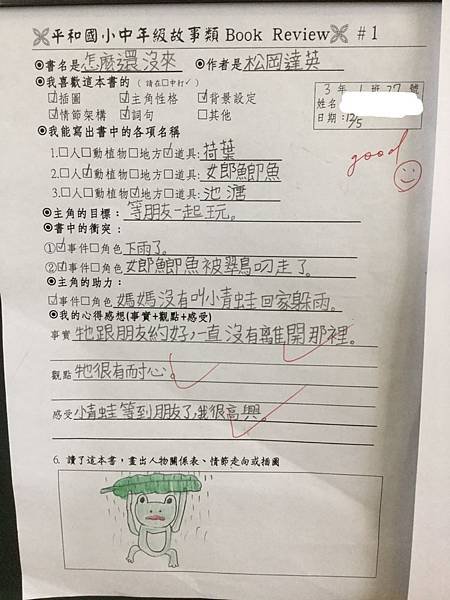 平和國小中年級故事類Book Review #1
◉書名是怎麼還沒來 ◉作者是松岡達英
◉我喜歡這本書的(請在□中打✓) 3年1班27號
☑插圖 ☑主角性格 ☑背景設定 姓名
☑情節架構 ☑詞句 □其他 日期:12/5
◉我能寫出書中的各項名稱
1.□人□動植物□地方☑道具:荷葉
good
2.□人☑動植物□地方□道具:女郎鯽魚
3.□人□動植物☑地方□道具:池溏
◉主角的目標:等朋友一起玩。
◉書中的衝突:
①☑事件□角色下雨了。
②☑事件□角色女郎鯽魚被翠鳥叼走了。
◉主角的助力:
☑事件□角色媽媽沒有叫小青蛙回家躲雨。
◉我的心得感想(事實+觀點+感受)
事實牠跟朋友約好,一直沒有離開那裡。
觀點牠很有耐心。
感受小青蛙等到朋友了,我很高興。
6. 讀了這本書,畫出人物關係表、情節走向或插圖